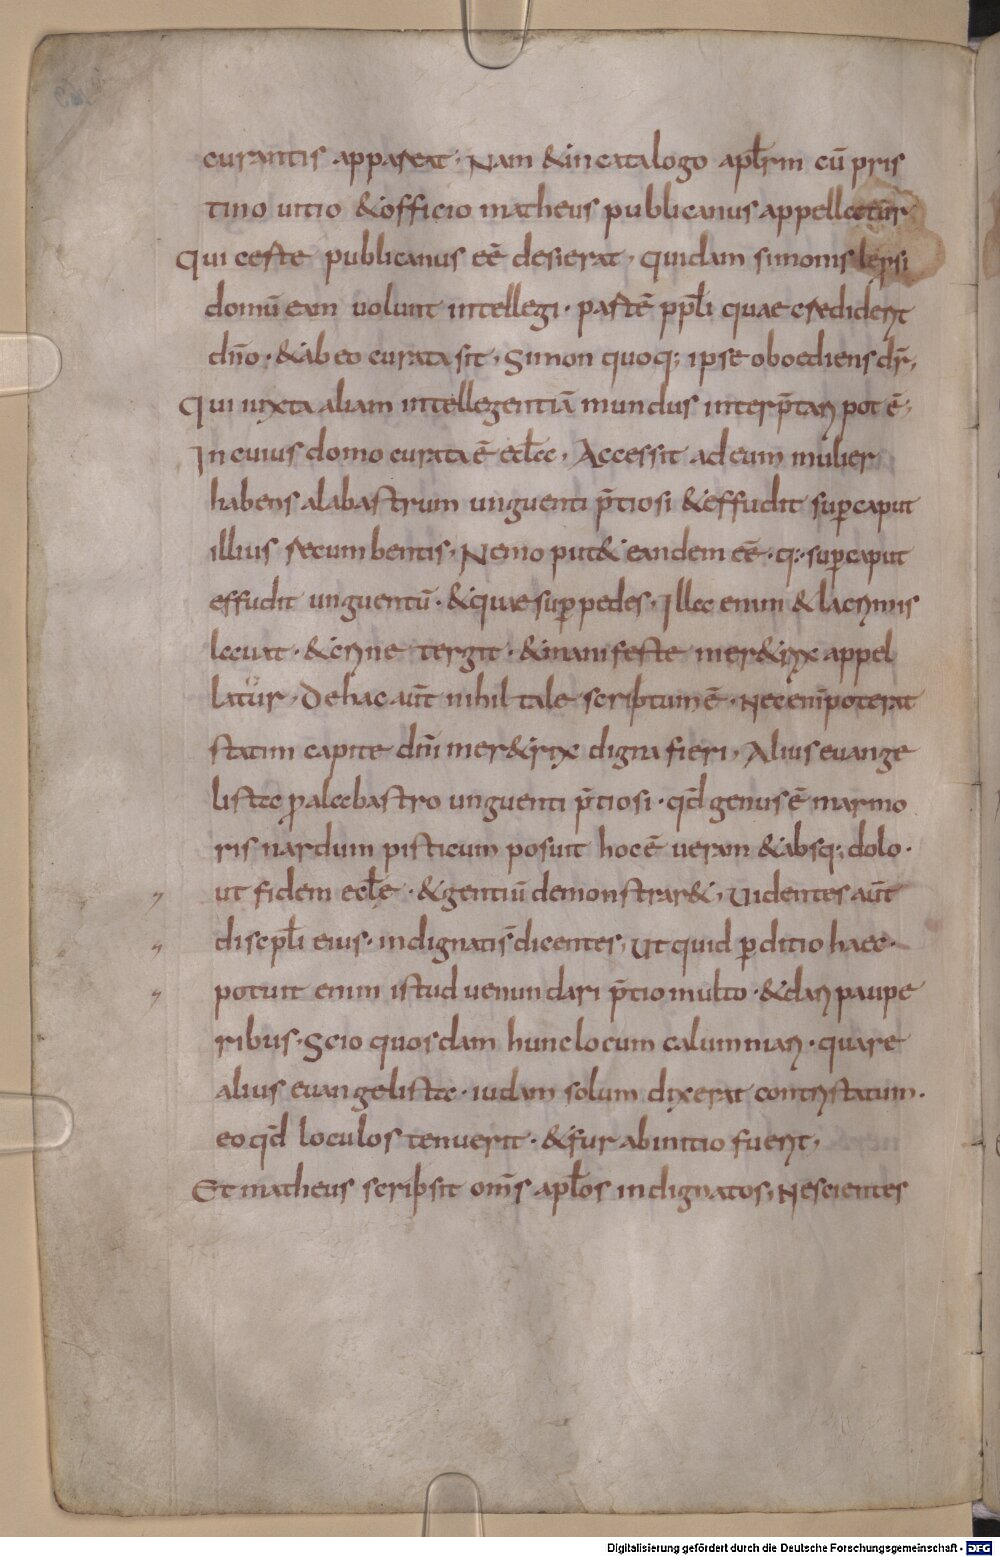 curantis appareat· Nam & in catalogo aptłrm cū pris
tino uitio & officio matheus publicanus appelletur
Qui certe publicanus eē desierat, quidam simonis leprsi
domū eam uolunt intellegi· partē ppłi quae crediderit
dño· & ab eo curata sit, Simon quoq; ipse oboediens dr̄,
Qui iuxta aliam intellegentiā mundus interp̄tari pot ē,
In cuius domo curata ē eclecc, Accessit ad eum mulier
habens alabastrum unguenti p̄tiosi & effudit sup caput
illius recumbentis, Nemo put& eandem eē· q; sup caput
effudit unguentū· & quae sup pedes, Illa enim & lacrimis
lauat· & crine tergit· & manifeste mer&rix appel
latur, De hac aūt nihil tale scriptum ē· Nec enī poterat
statim capite dn̄i mer&rix digna fieri, Alius euange
lista p alabastro unguenti p̄tiosi· qd genus ē marmo
ris nardum pisticum posuit hoc ē ueram & absq; dolo·
ut fidem ecłe· & gentiū demonstrar&, Uidentes aūt
discipłi eius· indignatis̄ dicentes, Ut quid pditio haec·
potuit enim istud uenundari p̄tio multo· & dari paupe
ribus· Scio quosdam hunc locum calumniari· quare
alius euangelista· iudam solum dixerat contristatum·
eo qd loculos tenuerit· & fur ab initio fuerit,
Et matheus scripsit om̄s apłos indignatos, Nescientes
Digitalisierung gefördert durch die Deutsche Forschungsgemeinschaft · DFG